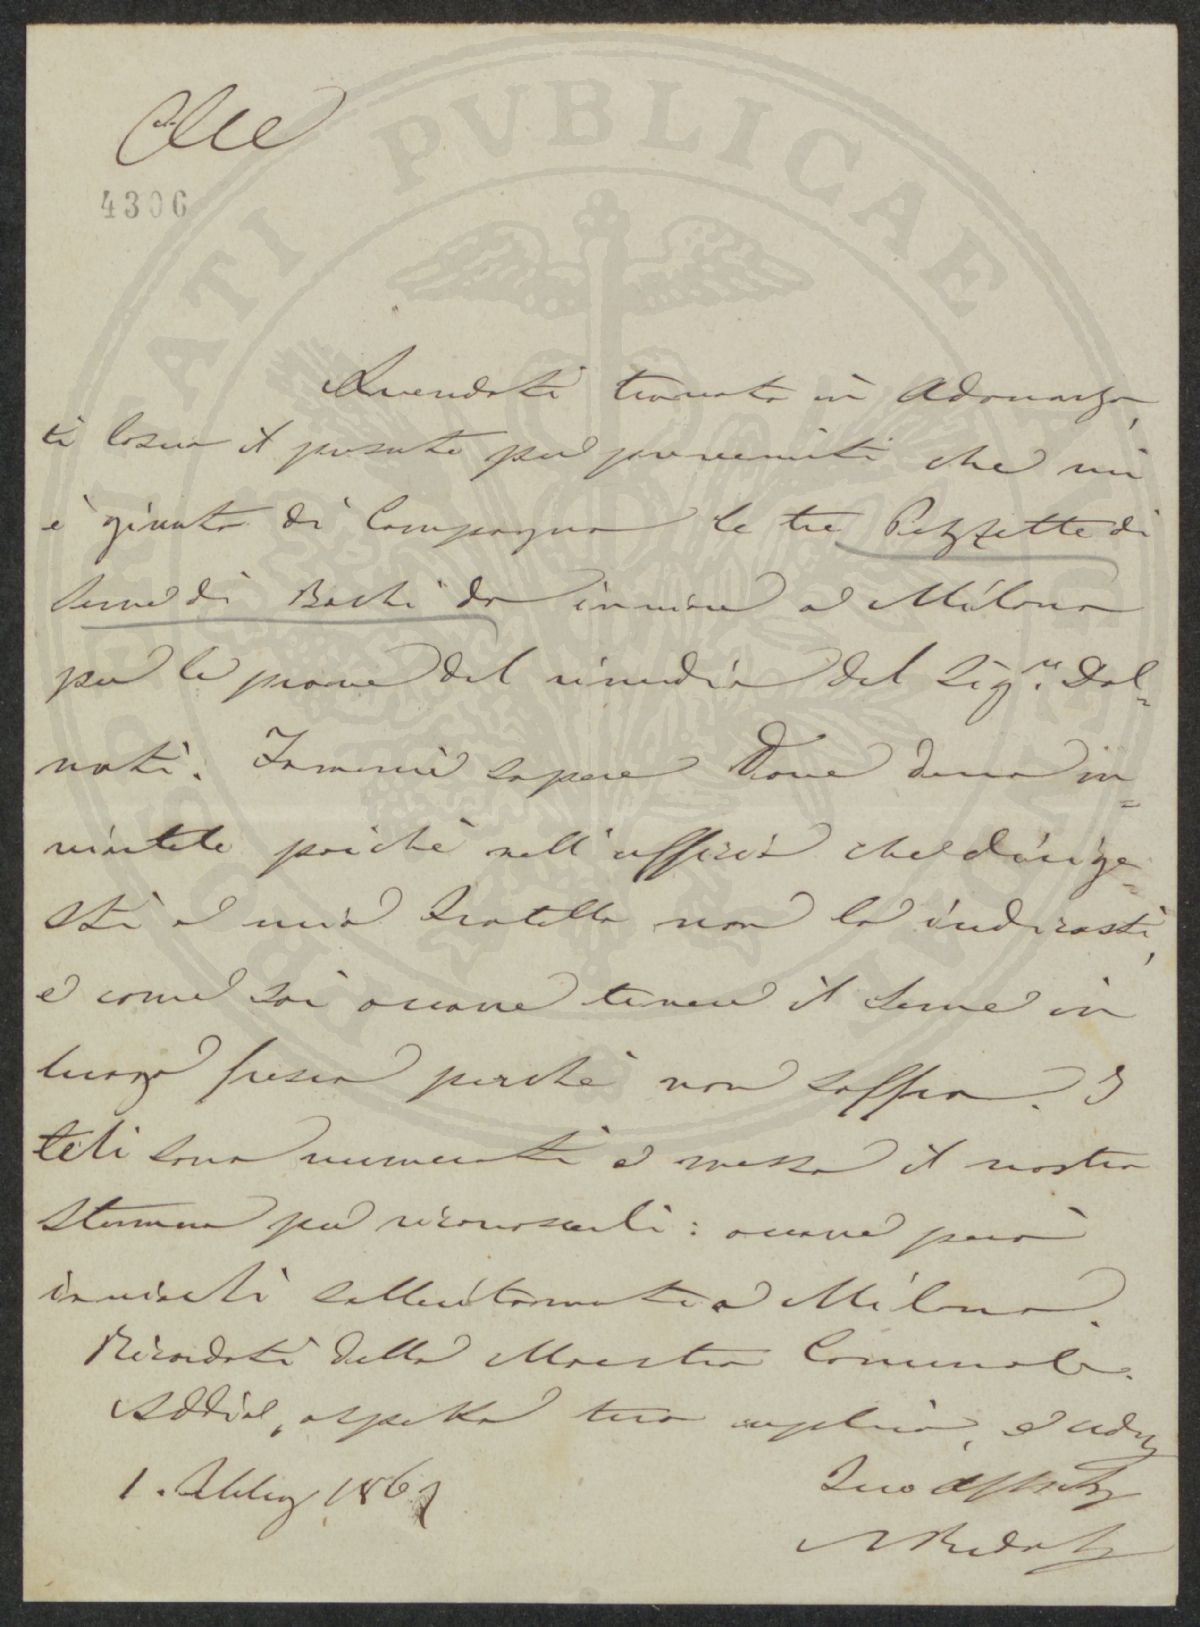 4306
PVBLICAE
Avendoti trovato in Adunanza,
ti lascio il presente per prevenirti che mi
è giunto di Campagna le tre Pezzette di
Seme di Bachi da inviare a Milano
per le prove del rimedio del Sigr. Dal=
Fammi sapere dove devo in=
viartele poichè nell'uffizio che dirige=
sti a mio Fratello non lo indicasti,
e come sai occorre tenere il seme in
luogo fresco perchè non soffra. I
teli sono numerati e messo il nostro
Stemma per riconoscerli: occorre però
inviarli sollecitamente a Milano.
Ricordati della Maestra Comunale.
Addio, aspetto tuo replica, e
1. 186
Tuo